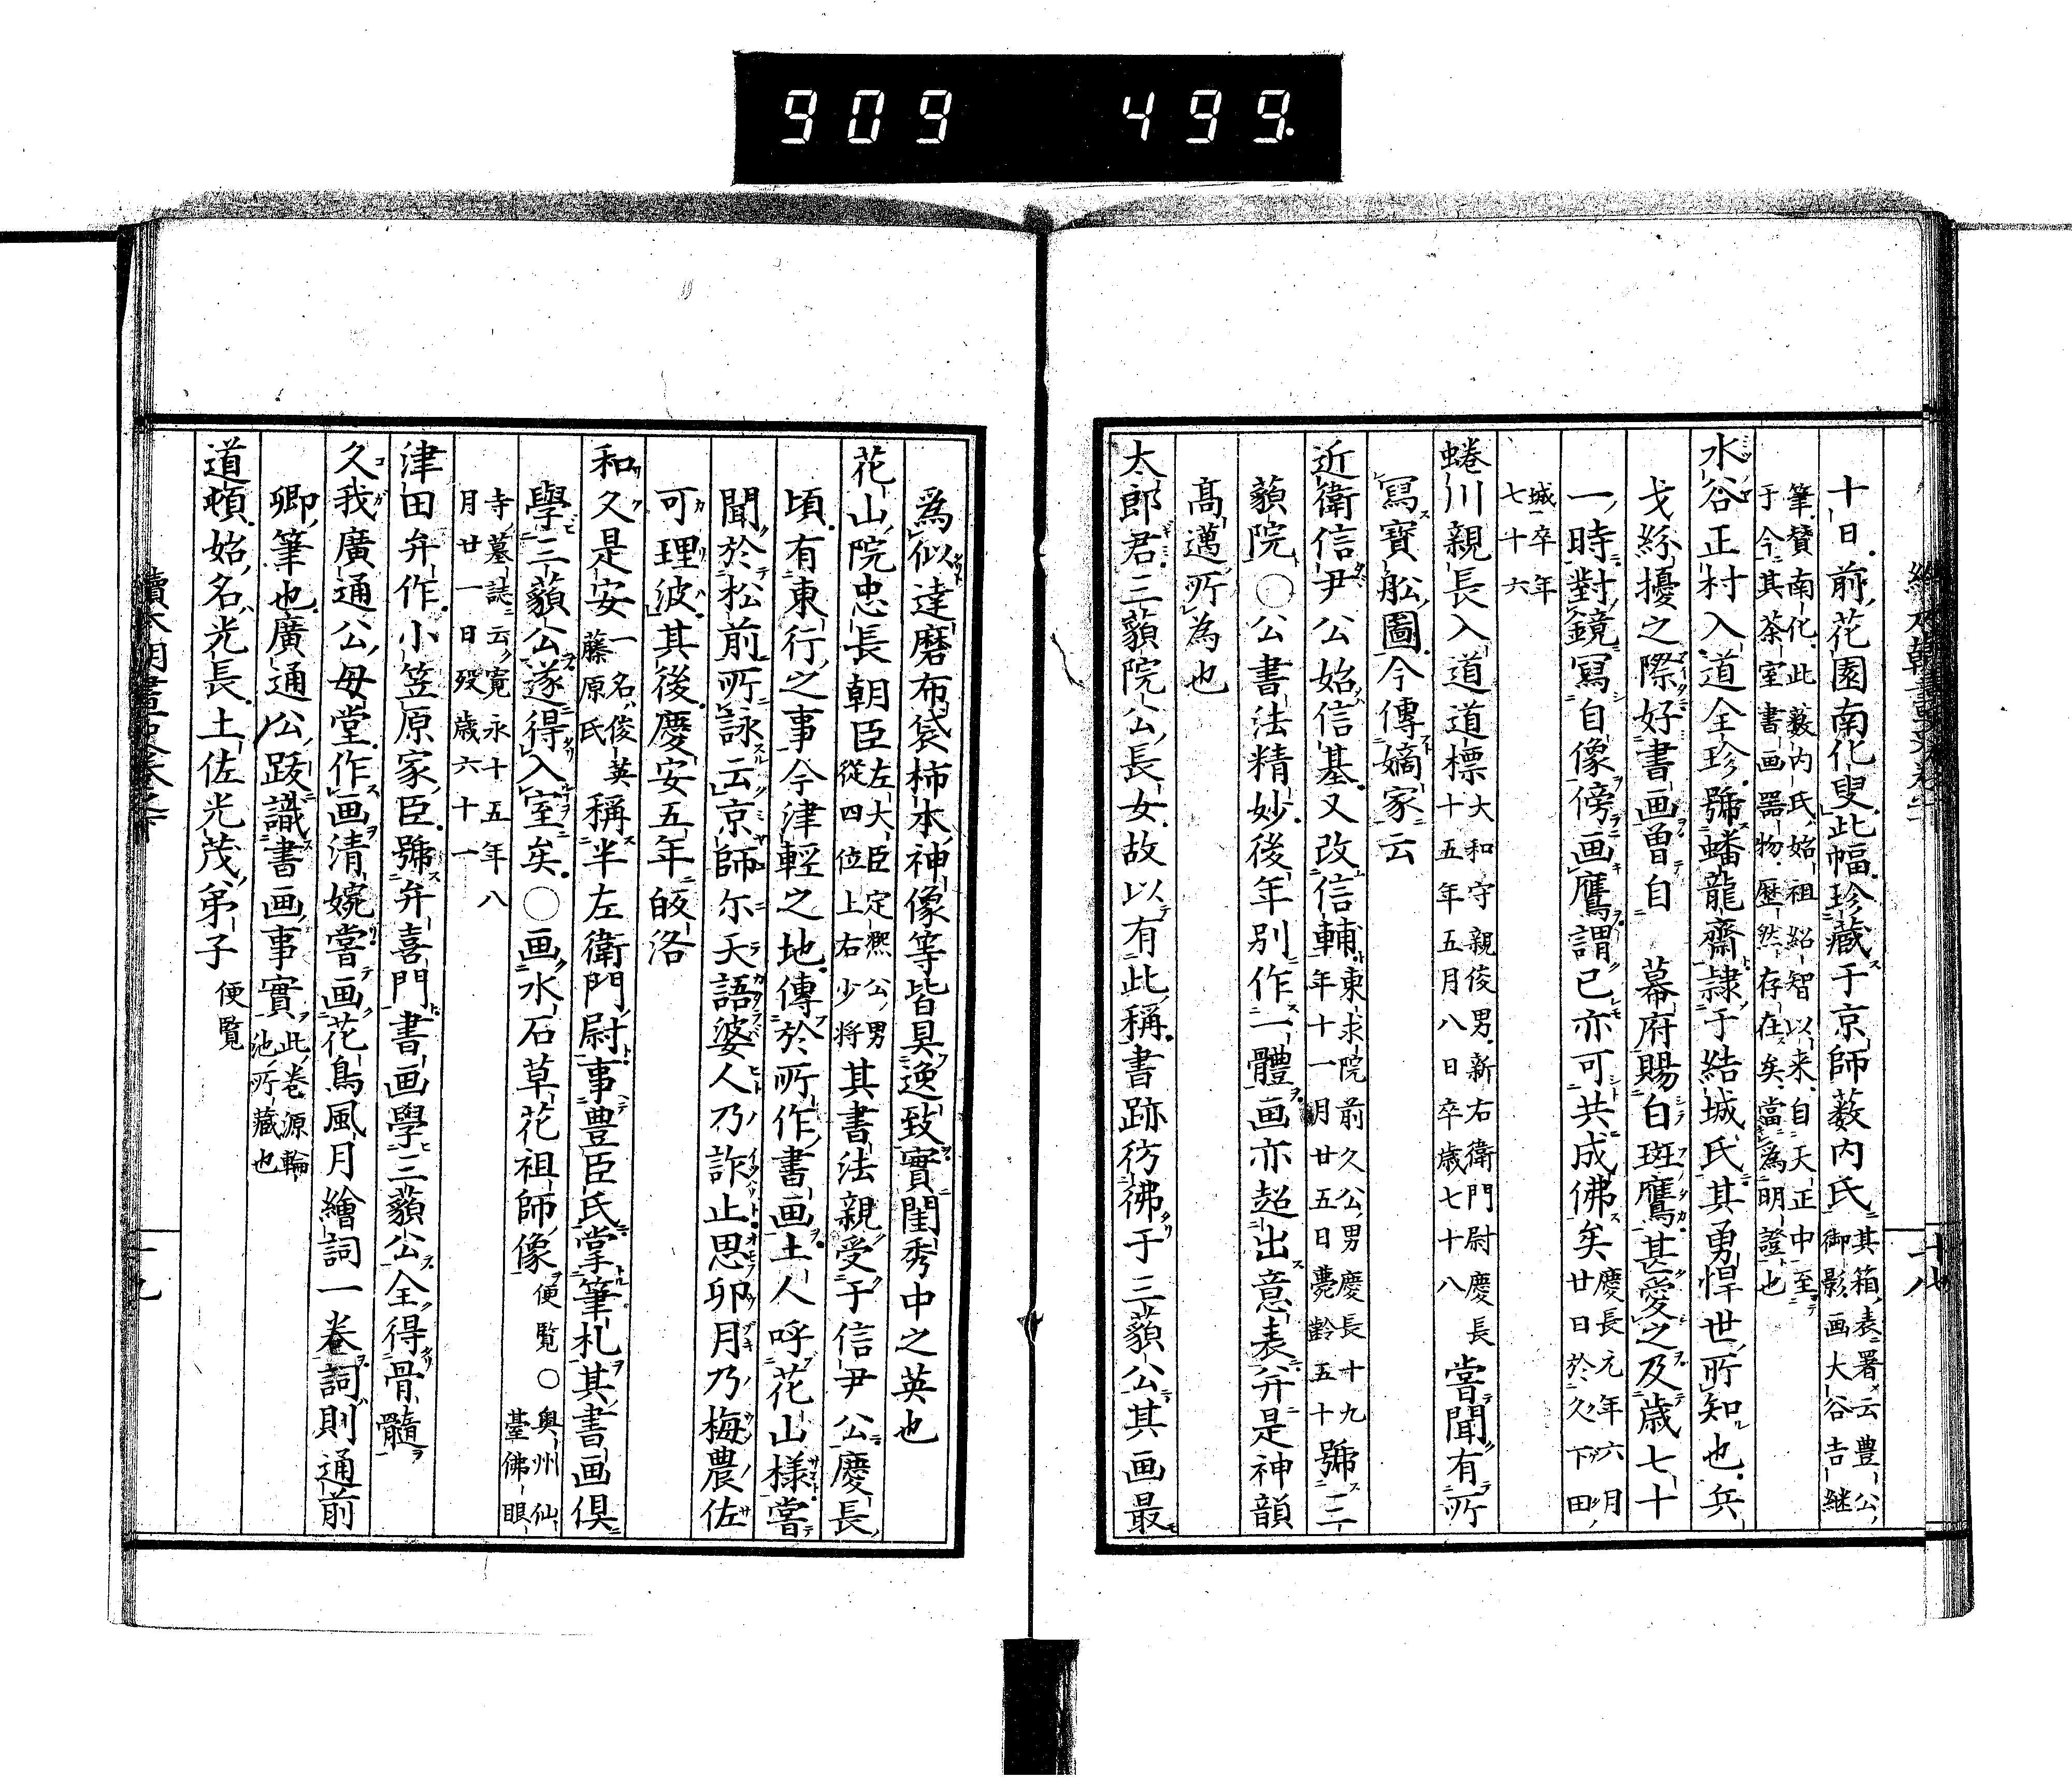 909 499.
十日前花園南化叟此幅珍藏于京師薮内氏其箱表署云豊公御影画大谷吉継
筆賛南化此薮内氏始祖紹智以来自天正中至于今其茶室書画器物歴然存在矣當為明證也
水谷正村入道全珍號蟠龍齋隷于結城氏其勇悍世所知也兵
戈紛擾之際好書画曽自 幕府賜白斑鷹甚愛之及歳七十
一時對鏡冩自像傍画鷹謂己亦可共成佛矣慶長元年六月廿日於久下田
城卒年七十六
蜷川親長入道道標大和守親俊男新右衛門尉慶長十五年五月八日卒歳七十八嘗聞有所
冩寳舩圖今傳嫡家云
近衛信尹公始信基又改信輔東求院前久公男慶長十九年十一月廿五日薨齢五十號三
藐院〇公書法精妙後年別作一體画亦超出意表弁是神韻
髙邁所為也
太郎君三藐院公長女故以有此稱書跡彷彿于三藐公其画最
爲似達磨布袋柿本神像等皆具逸致實閨秀中之英也
花山院忠長朝臣左大臣定凞公男從四位上右少将其書法親受于信尹公慶長
頃有東行之事今津輕之地傳於所作書画土人呼花山様嘗
聞於松前所詠云京師尓天語婆人乃詐止思卯月乃梅農佐
可理波其後慶安五年皈洛
和久是安一名俊英藤原氏稱半左衛門尉事豊臣氏掌筆札其書画倶
學三藐公遂得入室矣〇画水石草花祖師像便覧〇奥州仙臺佛眼
寺墓誌云寛永十五年八月廿一日歿歳六十一
津田弁作小笠原家臣號弁喜門書画學三藐公全得骨髓
久我廣通公母堂作画清婉嘗画花鳥風月繪詞一巻詞則通前
卿筆也廣通公跋識書画事實此巻源輪池所藏也
道頓始名光長土佐光茂弟子便覧